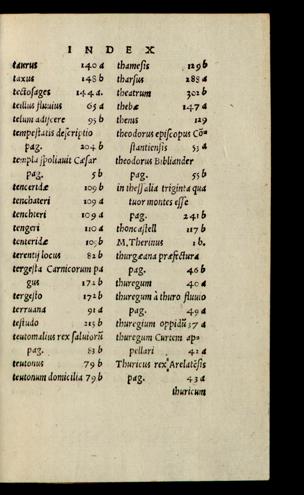 INDEX
taurus 140 a
taxus 148 b
tectosages 144 a.
tellius fluuius 65 a
telum adijcere 95 b
tempestatis descriptio
pag. 204 b
templa spoliauit Cæsar
pag. 5 b
tenceridæ 109 b
tenchateri 109 a
tenchteri 109 a
tengeri 110 a
tenteridæ 109 b
terentij locus 82 b
tergesta Carnicorum pa
gus 172 b
tergesto 172 b
terruana 91 a
testudo 215 b
teutomalius rex saluiorũ
pag. 83 b
teutonus 79 b
teutonum domicilia 79 b
thamesis 129 b
tharsus 288 a
theatrum 302 b
thebæ 147 a
thenis 129
theodorus episcopus Cõ⸗
stantiensis 53 a
theodorus Bibliander
pag. 55 b
in thessalia triginta qua
tuor montes esse
pag. 241 b
thoncastell 117 b
M. Therinus 1 b.
thurgæana præfectura
pag. 46 b
thuregum 40 a
thuregum à thuro fluuio
pag. 49 a
thuregium oppidũ 37 a
thuregum Curiem ap⸗
pellari 42 a
Thuricus rex Arelatẽsis
pag. 43 a
thuricum